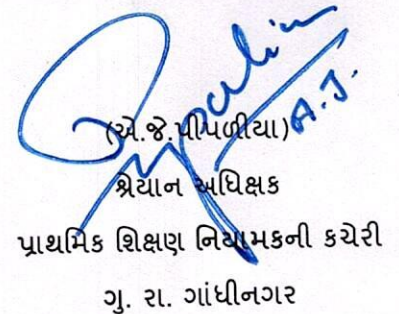 (એ.જે.પીપળીયા)
A.J.
શ્રેયાન અધિક્ષક
પ્રાથમિક શિક્ષણ નિયામકની કચેરી
ગુ. રા. ગાંધીનગર